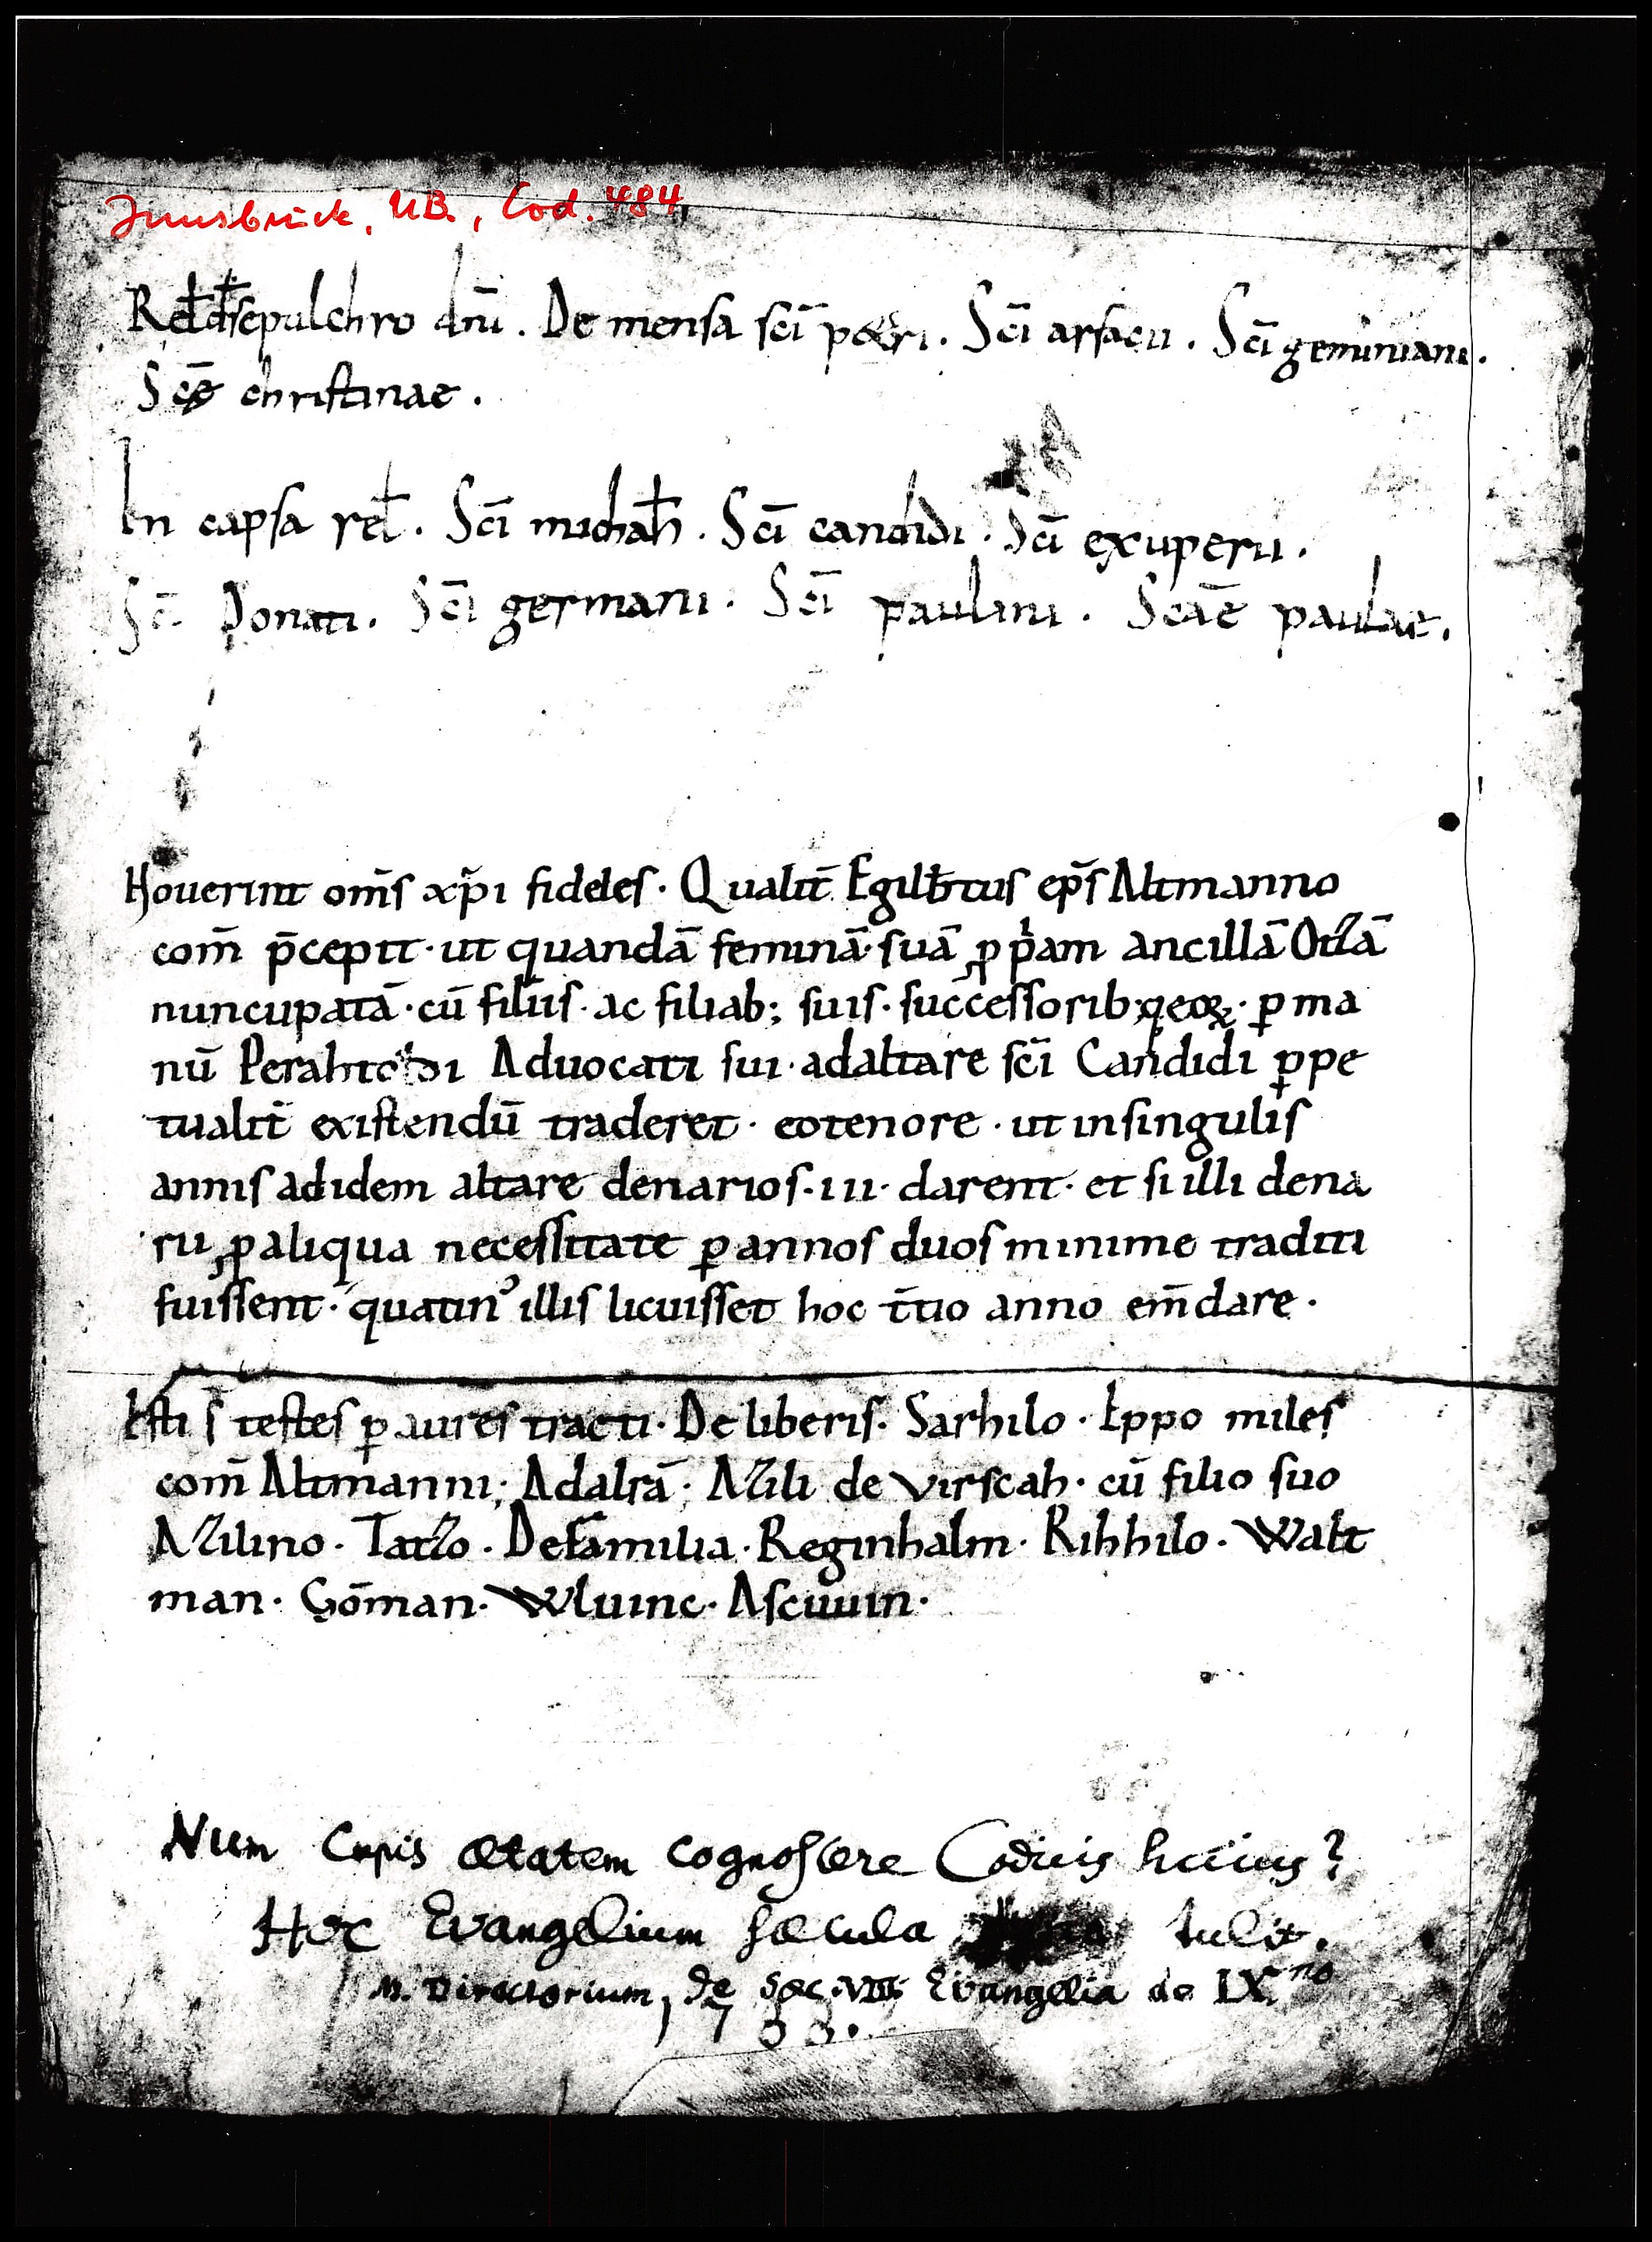 Innsbruck, UB., Cod. 484,
Rel̄ de sepulchro dn̄i. De mensa sc̄i petri. Sc̄i arsacii. Sc̄i geminiani.
Scē christinae.
In capsa rel̄. Sc̄i michah̄. Sc̄i candidi. Sc̄i exuperii.
Sc̄i Donati. Sc̄i germani. Sc̄i paulini. Scāe paulae.
Nouerint om̄s xp̄i fideles· Qualit̄ Egilb̄rtus ep̄s Altmanno
com̄ p̄cepit· ut quandā feminā· suā ꝓpͥam ancillā Ozā
nuncupatā· cū filiis· ac filiab; suis· successorib; qeoꝝ· ꝑ ma
nū Perahtoldi Aduocati sui· ad altare sc̄i Candidi ꝑpe
tualit̄ existendū traderet· eo tenore· ut in singulis
annis ad idem altare denarios· iii· darent· et si illi dena
rii ꝓ aliqua necessitate ꝑ annos duos minime traditi
fuissent· quatinꝰ illis licuisset hoc t̄tio anno em̄dare·
Isti s̄ testes ꝑ aures tracti· De liberis· Sarhilo· Eppo miles
com̄ Altmanni; Adalrā; Azili de virscah· cū filio suo
Azilino· Tatzo· De familia· Reginhalm· Rihhilo· Walt
man· Gōman· Wluinc· Ascuuin·
Num Cupis ætatem cognoscere Codicis huius?
Hoc Evangelium sæcula tulit.
N. Directorium de Sæc. VIII Evangelia de IX.no
1788.